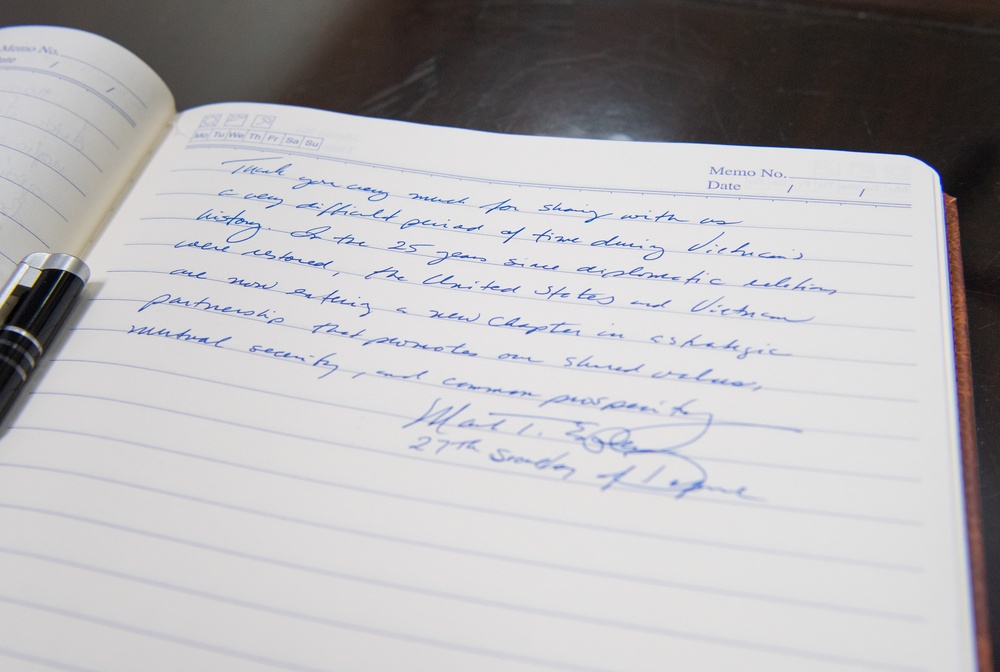 Memo No.
Date / /
Mo Tu We Th Fr Sa Su
Memo No.
Date / /
Thank you very much for sharing with us
a very difficult period of time during Vietnam's
history. In the 25 years since diplomatic relations
were restored, the United States and Vietnam
are now entering a new chapter in a strategic
partnership that promotes our shared values,
mutual security, and common prosperity
Mark T. Esper
27th Secretary of Defense